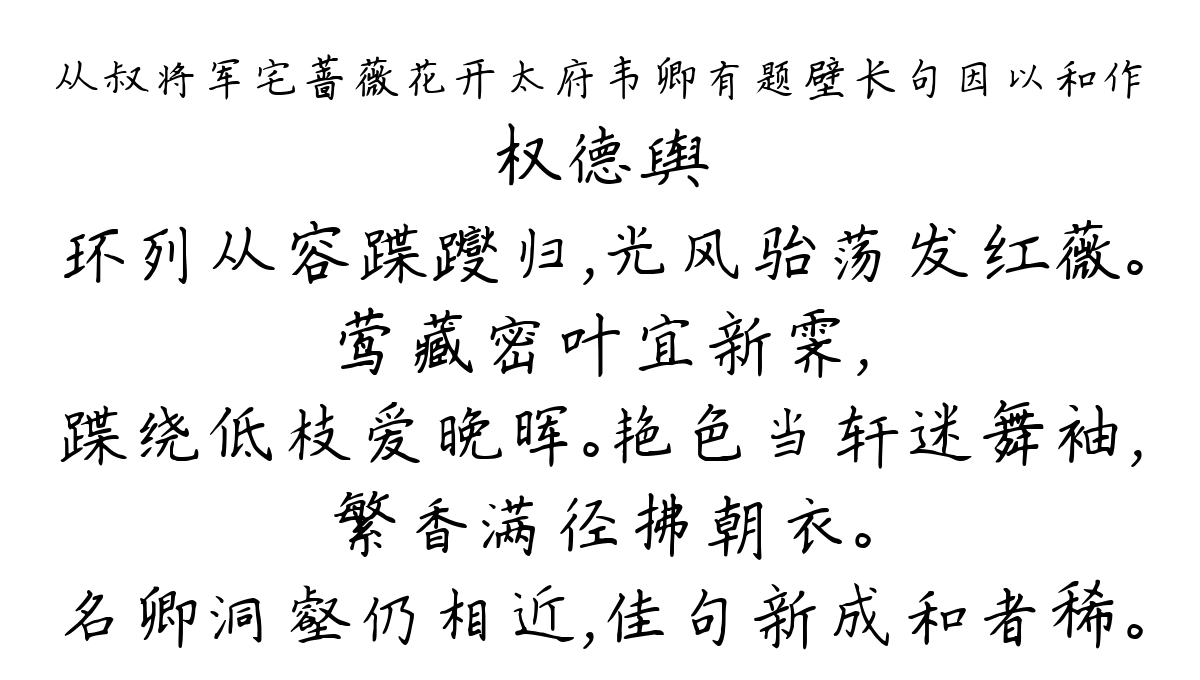 从叔将军宅蔷薇花开太府韦卿有题壁长句因以和作
权德舆
环列从容蹀躞归,光风骀荡发红薇。
莺藏密叶宜新霁,
蹀绕低枝爱晚晖。艳色当轩迷舞袖,
繁香满径拂朝衣。
名卿洞壑仍相近,佳句新成和者稀。